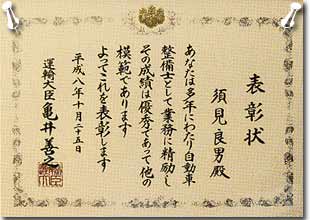 表彰状
須見良男殿
あなたは多年にわたり自動車
整備士として業務に精励し
その成績は優秀であって他の
模範であります
よってこれを表彰します
平成八年十月二十五日
運輸大臣 亀井善之